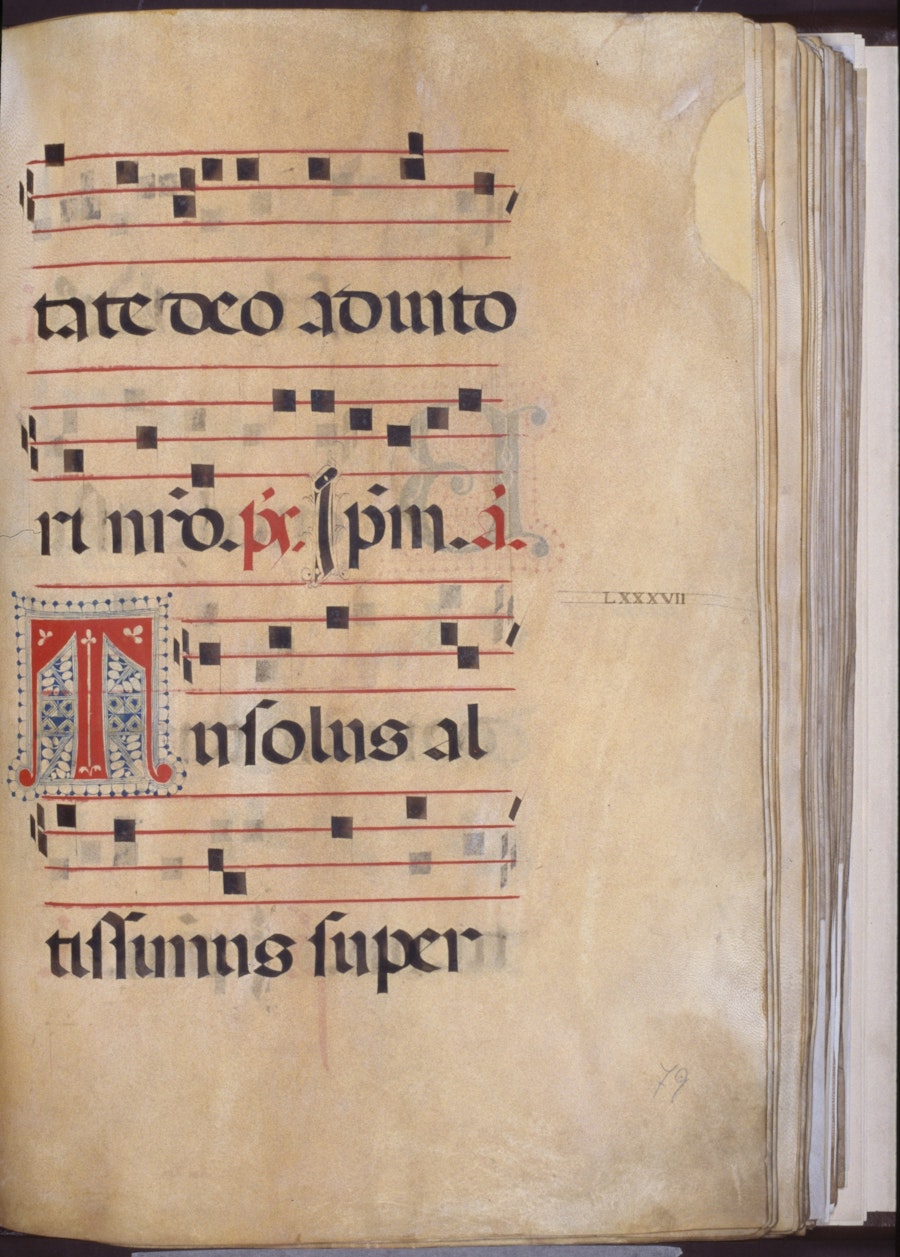 tate deo adiuto
ri nr̄o. p̄s. Ip̄m. ā.
LXXXVII
Tu solus al
tissimus super
79